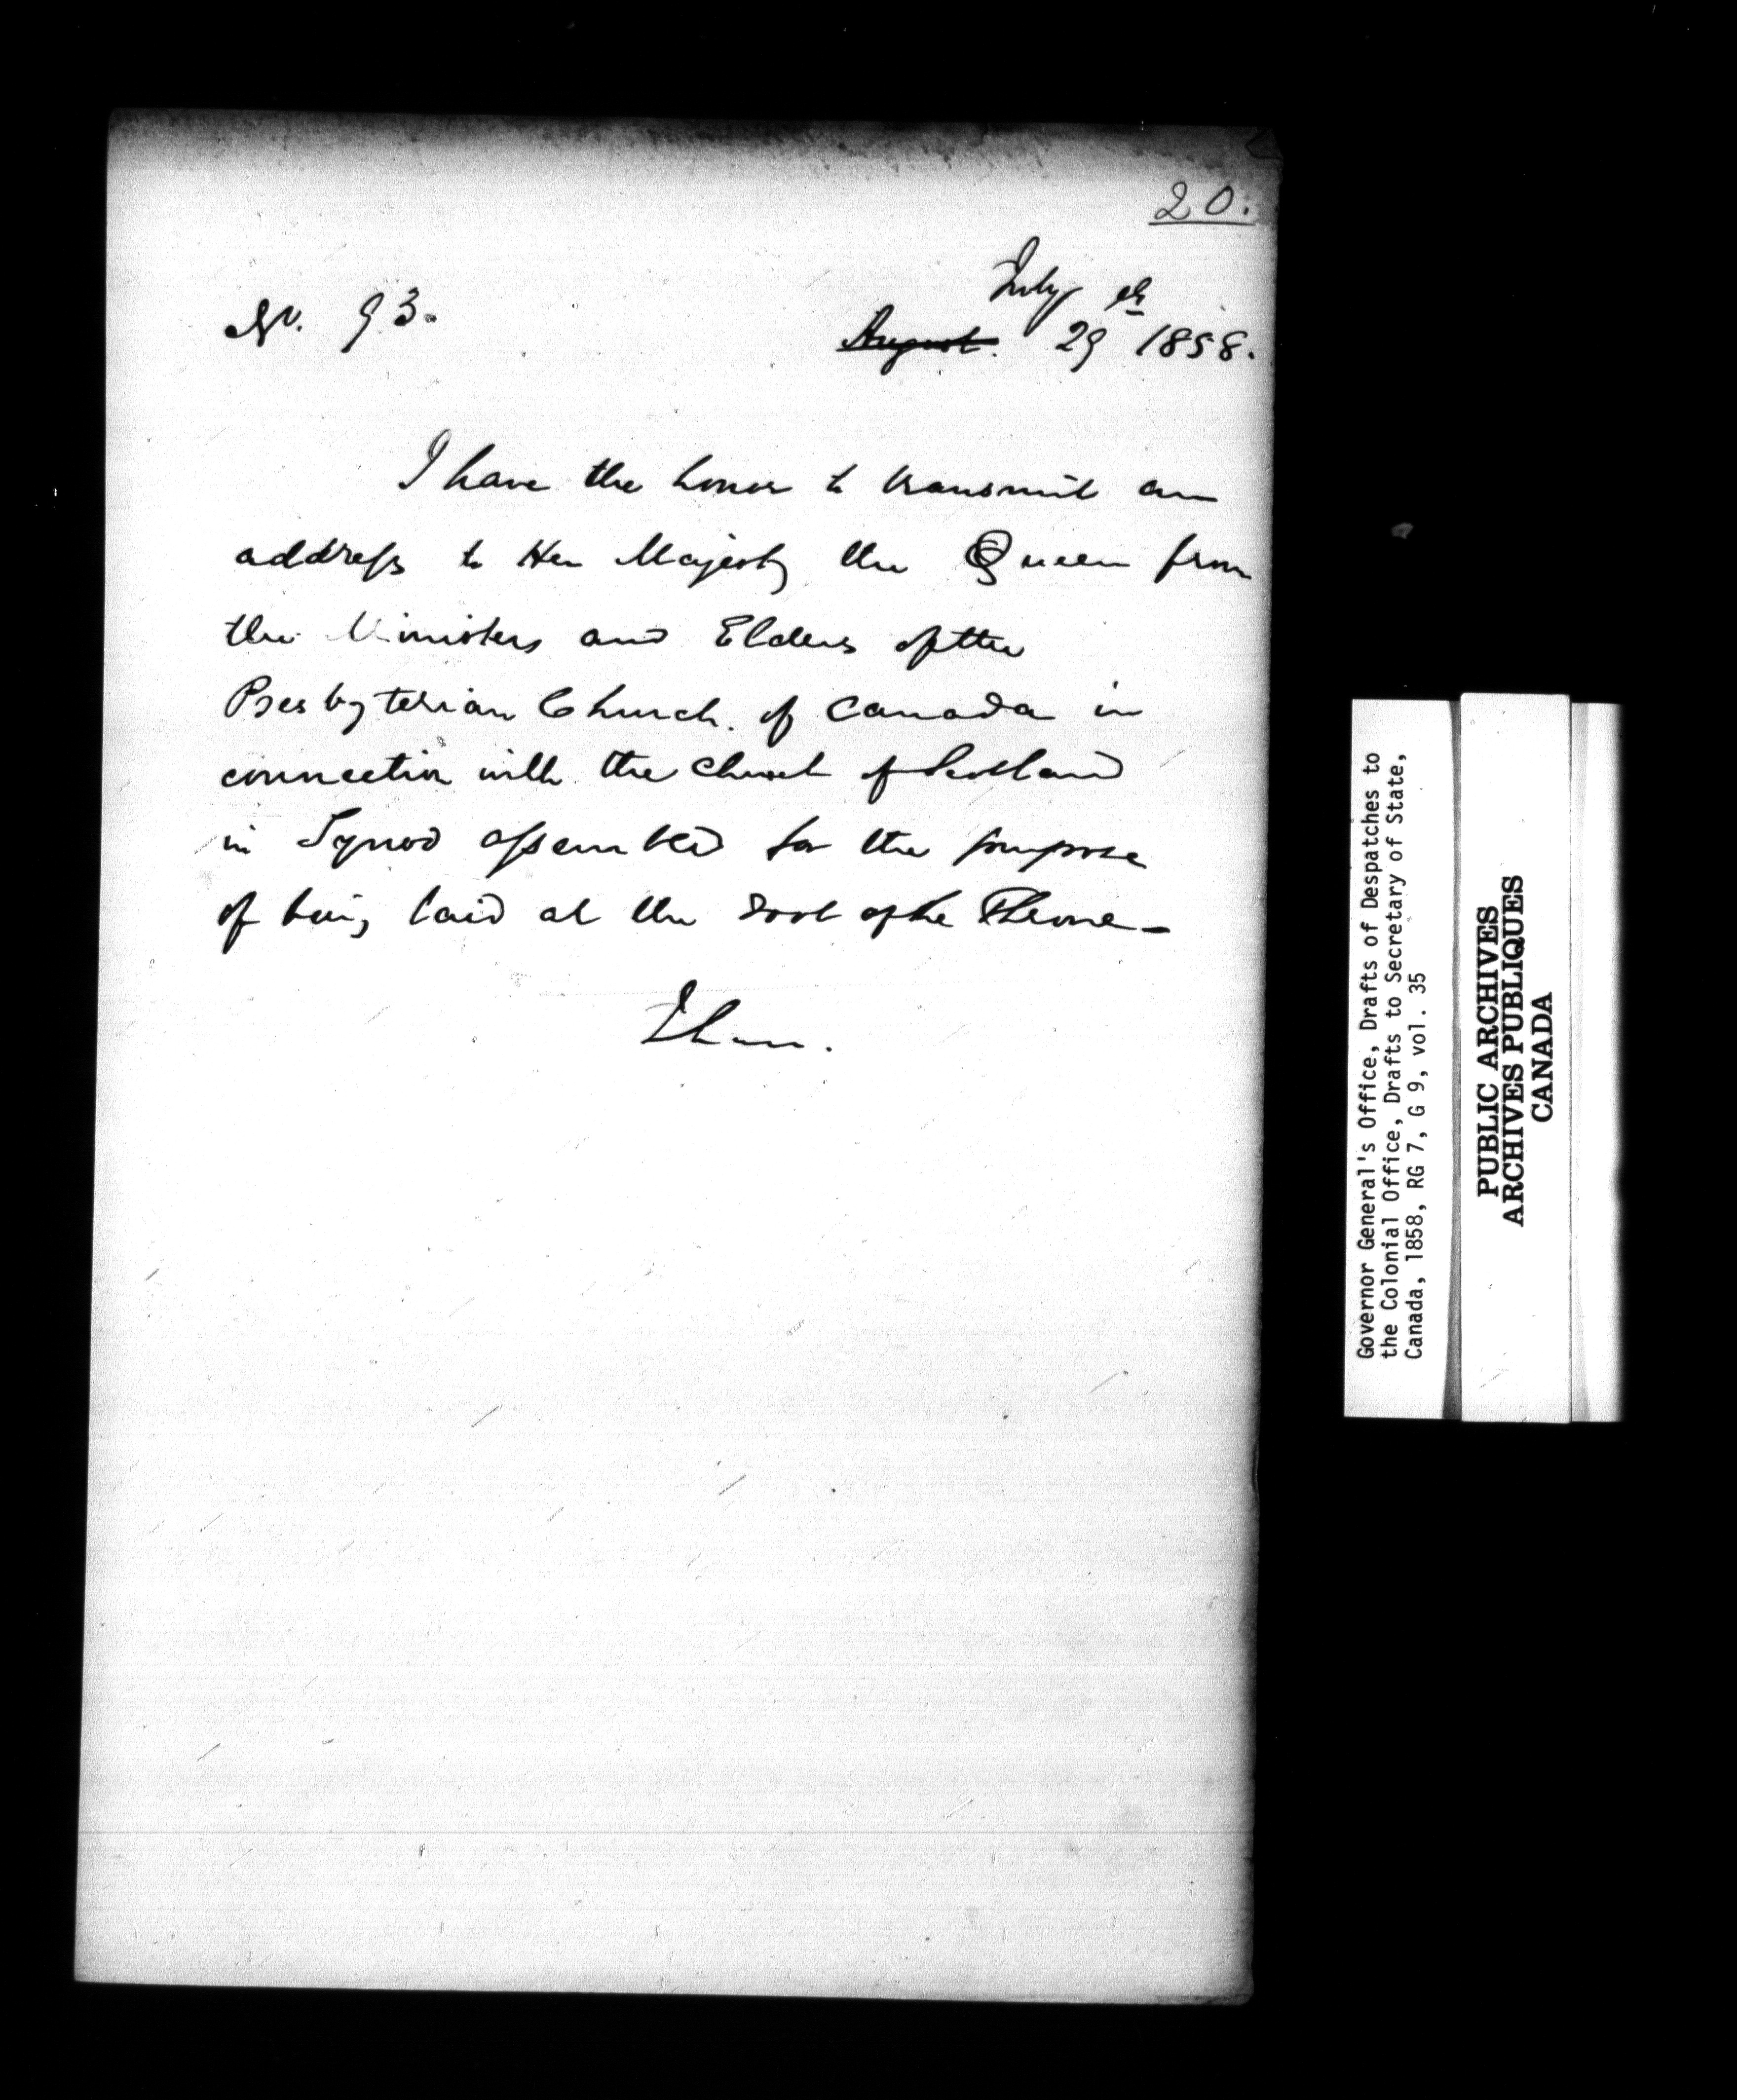 20.
No. 93.
July th
~~August.~~ 29 1858.
I have the honor to transmit an
address to Her Majesty the Queen from
the Ministers and Elders of the
Presbyterian Church of Canada in
connection with the Church of Scotland
in Synod assembled for the purpose
of being laid at the foot of the Throne -
I have.
Governor General's Office, Drafts of Despatches to
the Colonial Office, Drafts to Secretary of State,
Canada, 1858, RG 7, G 9, vol. 35
PUBLIC ARCHIVES
ARCHIVES PUBLIQUES
CANADA